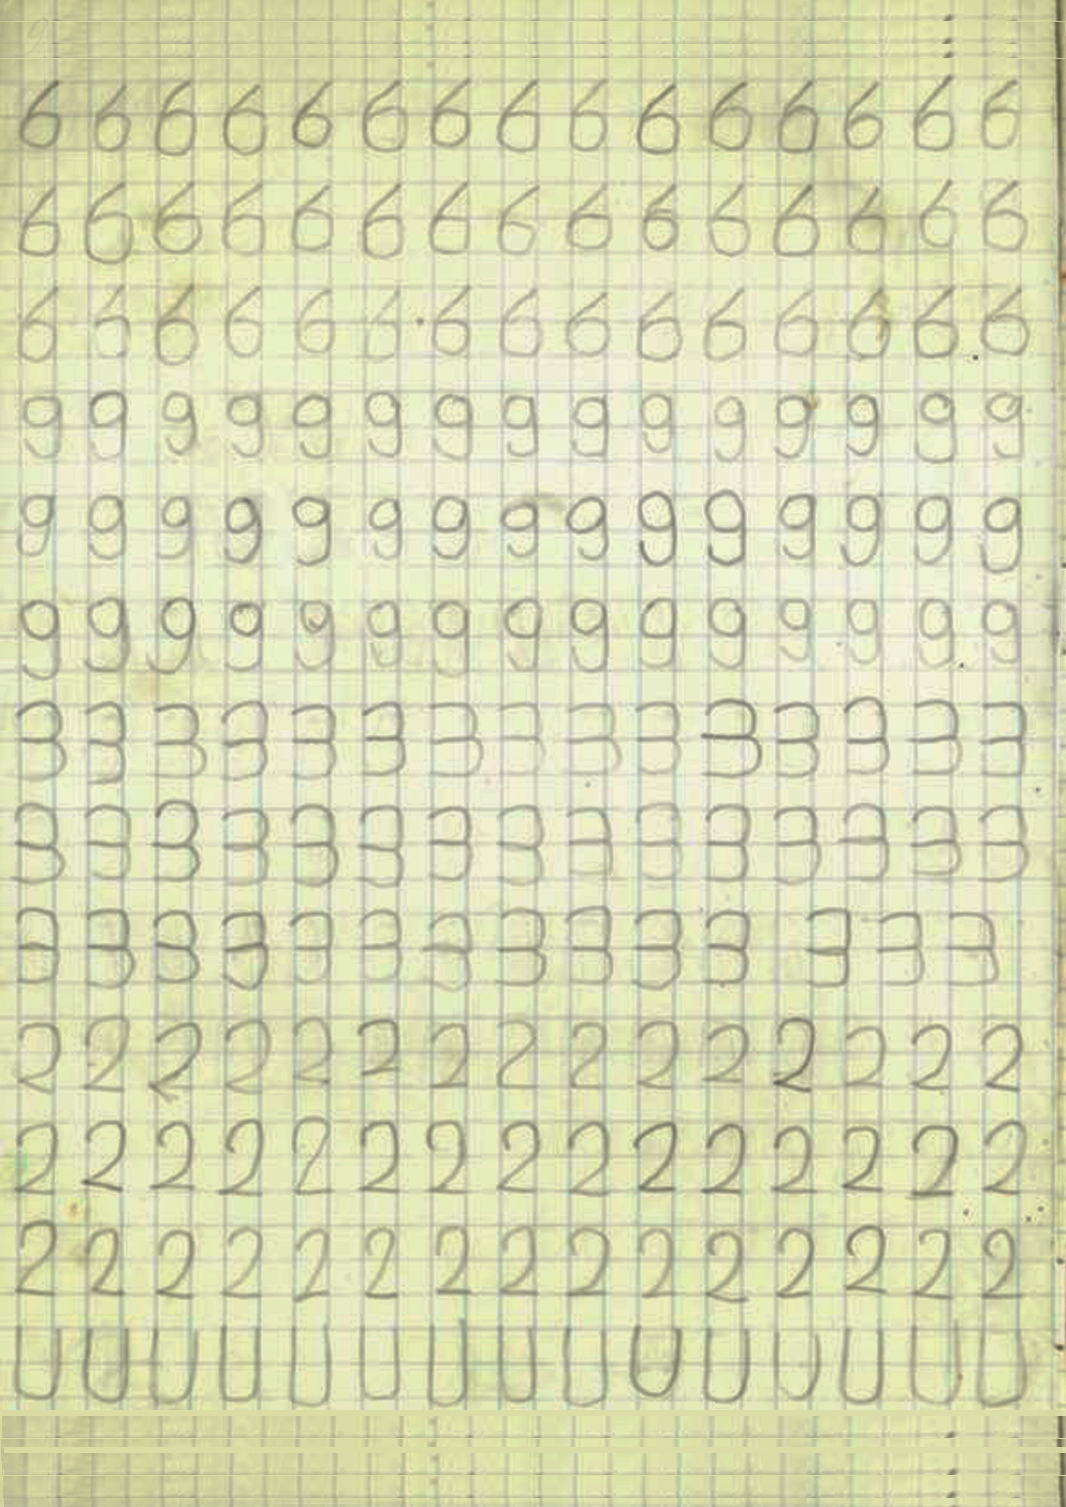 6 6 6 6 6 6 6 6 6 6 6 6 6 6 6
6 6 6 6 6 6 6 6 6 6 6 6 6 6 6
6 6 6 6 6 6 6 6 6 6 6 6 6 6 6
9 9 9 9 9 9 9 9 9 9 9 9 9 9 9
9 9 9 9 9 9 9 9 9 9 9 9 9 9 9
9 9 9 9 9 9 9 9 9 9 9 9 9 9 9
3 3 3 3 3 3 3 3 3 3 3 3 3 3 3
3 3 3 3 3 3 3 3 3 3 3 3 3 3 3
3 3 3 3 3 3 3 3 3 3 3 3 3 3
2 2 2 2 2 2 2 2 2 2 2 2 2 2 2
2 2 2 2 2 2 2 2 2 2 2 2 2 2 2
2 2 2 2 2 2 2 2 2 2 2 2 2 2 2
U U U U U U U U U U U U U U U